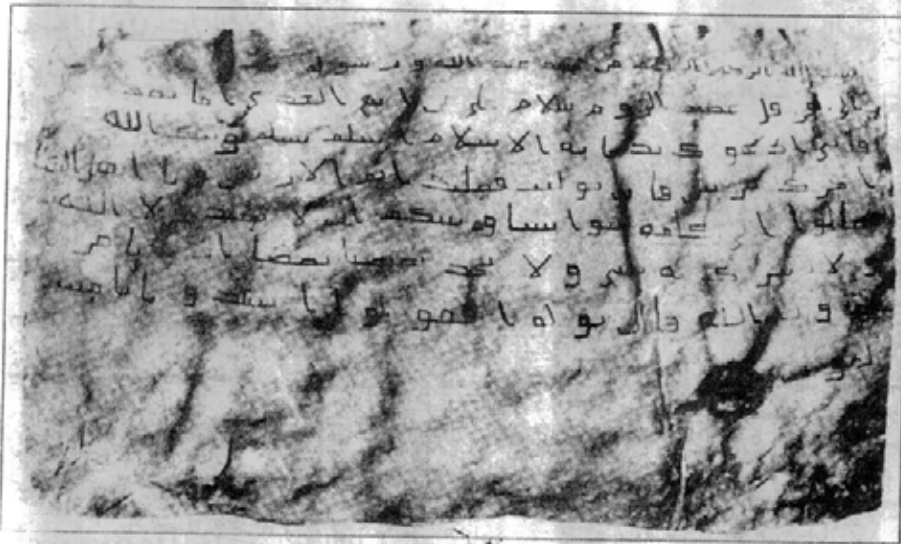 بسم الله الرحمن الرحيم من محمد عبد الله ورسوله
هرقل عظيم الروم سلام على من اتبع الهدى اما بعد
فاني ادعوك بدعاية الاسلام اسلم تسلم يوتك الله
اجرك مرتين فان توليت فعليك اثم الاريسين ويا اهل الكتاب
تعالوا الى كلمة سوا بيننا وبينكم الا نعبد الا الله
ولا نشرك به شي ولا يتخذ بعضنا بعضا اربابا من
دون الله فان تولوا فقولوا